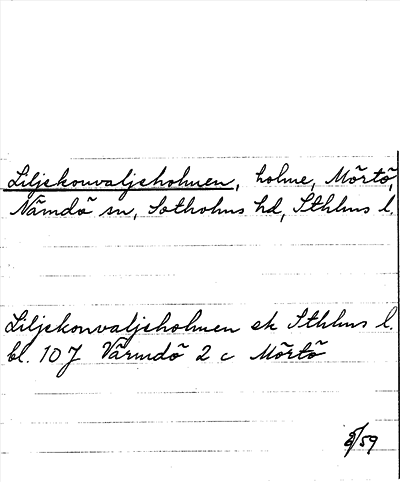 Liljekonvaljeholmen, holme, Mörtö,
Nämdö sn, Sotholms hd, Sthlms l.
Liljekonvaljeholmen ek Sthlms l.
bl. 107 Värmdö 2 c Mörtö
/59